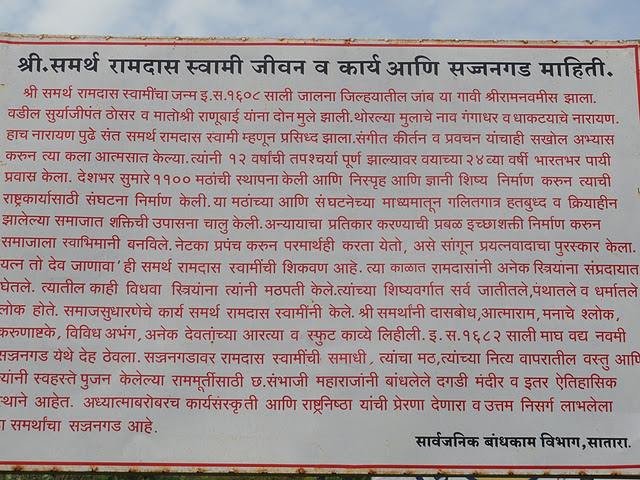 श्री.समर्थ रामदास स्वामी जीवन व कार्य आणि सज्जनगड माहिती.
श्री समर्थ रामदास स्वामींचा जन्म इ.स.१६०८ साली जालना जिल्हयातील जांब या गावी श्रीरामनवमीस झाला.
वडील सुर्याजीपंत ठोसर व मातोश्री राणूबाई यांना दोन मुले झाली.थोरल्या मुलाचे नाव गंगाधर व धाकटयाचे नारायण.
हाच नारायण पुढे संत समर्थ रामदास स्वामी म्हणून प्रसिध्द झाला.संगीत कीर्तन व प्रवचन यांचाही सखोल अभ्यास
करुन त्या कला आत्मसात केल्या.त्यांनी १२ वर्षाची तपश्चर्या पूर्ण झाल्यावर वयाच्या २४व्या वर्षी भारतभर पायी
प्रवास केला. देशभर सुमारे ११०० मठांची स्थापना केली आणि निस्पृह आणि ज्ञानी शिष्य निर्माण करुन त्याची
राष्ट्रकार्यासाठी संघटना निर्माण केली. या मठांच्या आणि संघटनेच्या माध्यमातून गलितगात्र हतबुध्द व क्रियाहीन
झालेल्या समाजात शक्तिची उपासना चालु केली.अन्यायाचा प्रतिकार करण्याची प्रबळ इच्छाशक्ती निर्माण करुन
समाजाला स्वाभिमानी बनविले. नेटका प्रपंच करुन परमार्थही करता येतो, असे सांगून प्रयत्नवादाचा पुरस्कार केला.
यत्न तो देव जाणावा' ही समर्थ रामदास स्वामींची शिकवण आहे. त्या काळात रामदासांनी अनेक स्त्रियांना संप्रदायात
घेतले. त्यातील काही विधवा स्त्रियांना त्यांनी मठपती केले.त्यांच्या शिष्यवर्गात सर्व जातीतले,पंथातले व धर्मातले
लोक होते. समाजसुधारणेचे कार्य समर्थ रामदास स्वामींनी केले. श्री समर्थांनी दासबोध,आत्माराम,मनाचे श्लोक,
करुणाष्टके, विविध अभंग, अनेक देवतांच्या आरत्या व स्फुट काव्ये लिहीली. इ.स.१६८२ साली माघ वद्य नवमी
सज्जनगड येथे देह ठेवला. सज्जनगडावर रामदास स्वामींची समाधी, त्यांचा मठ,त्यांच्या नित्य वापरातील वस्तु आणि
त्यांनी स्वहस्ते पुजन केलेल्या राममूर्तीसाठी छ.संभाजी महाराजांनी बांधलेले दगडी मंदीर व इतर ऐतिहासिक
स्थाने आहेत. अध्यात्माबरोबरच कार्यसंस्कृती आणि राष्ट्रनिष्ठा यांची प्रेरणा देणारा व उत्तम निसर्ग लाभलेला
समर्थांचा सज्जनगड आहे.
सार्वजनिक बांधकाम विभाग,सातारा.